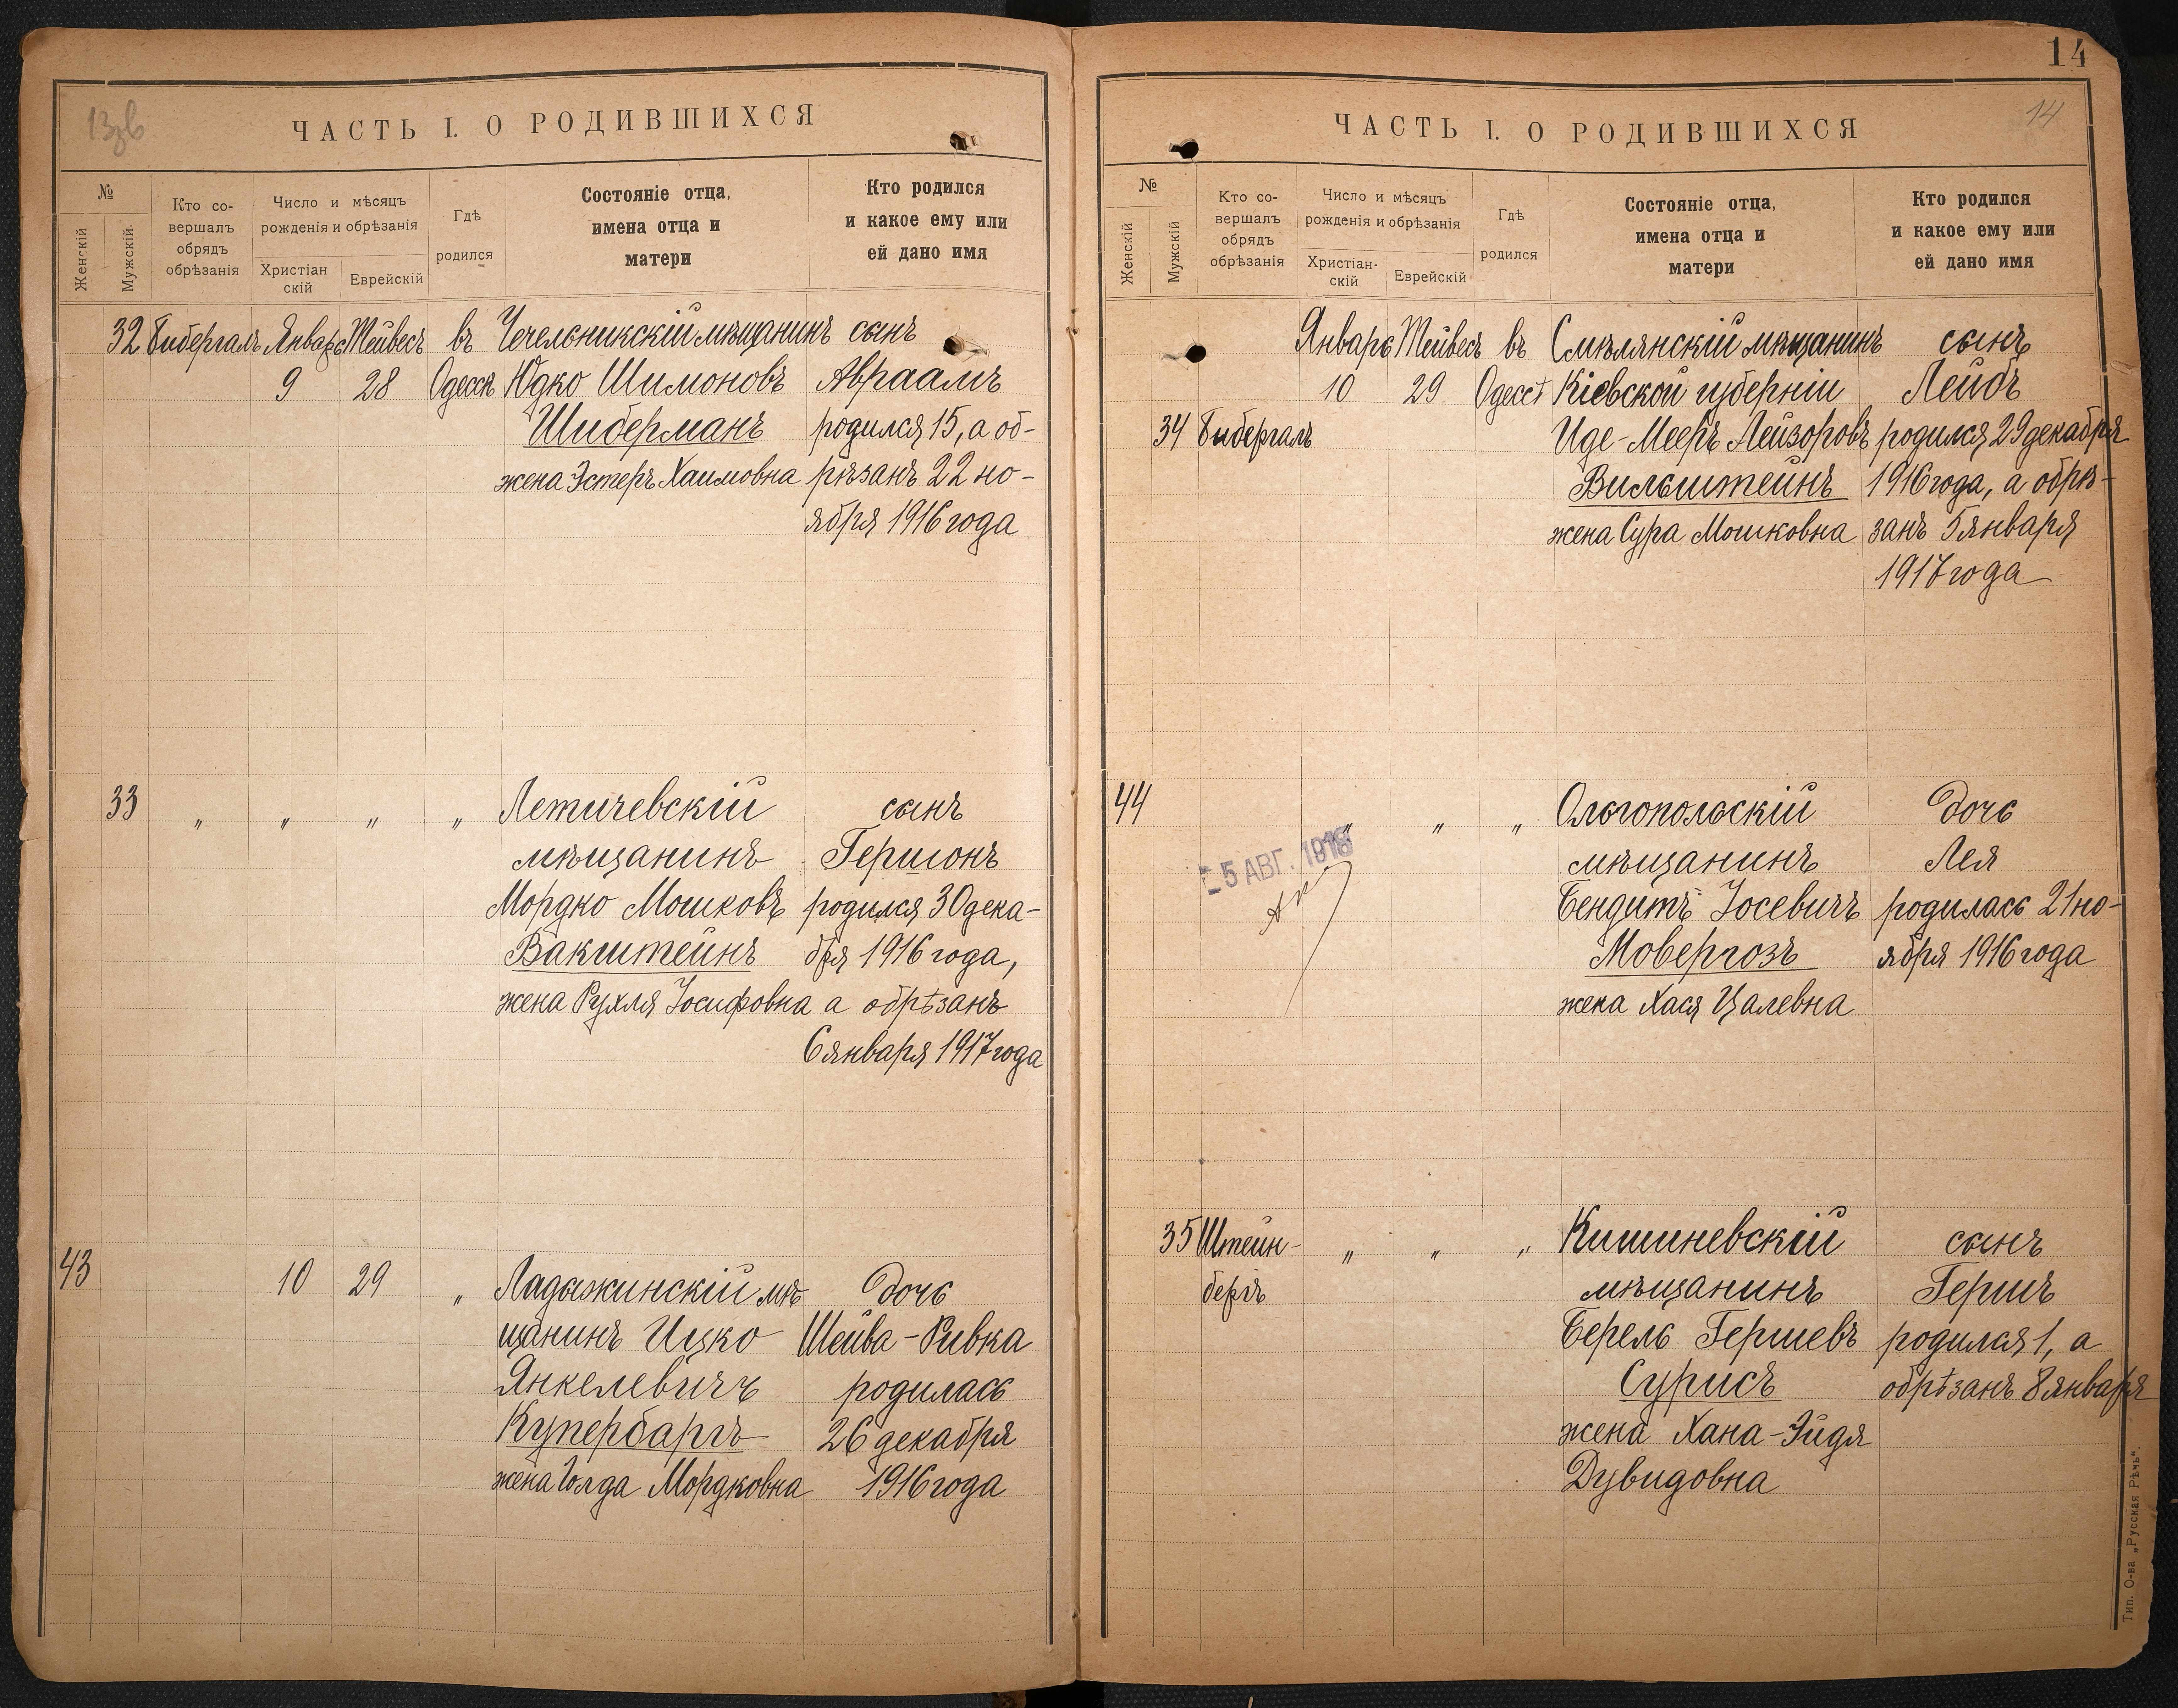 13зв
ЧАСТЬ I. О РОДИВШИХСЯ
№
Женскій
Мужскій
Кто со-
вершалъ
обрядъ
обрѣзанія
Число и мѣсяцъ
рожденія и обрѣзанія
Христіан
скій
Еврейскій
Гдѣ
родился
Состояніе отца,
имена отца и
матери
Кто родился
и какое ему или
ей дано имя
32 Бибергалъ Январь Тейвесъ въ Чечельникскій мѣщанинъ сынъ
9 28 Одессѣ Юдко Шимоновъ Авраамъ
Шиберманъ родился 15, а об-
жена Эстеръ Хаимовна рѣзанъ 22 но-
ября 1916 года
33 " " " " Летичевскій сынъ
мѣщанинъ Гершонъ
Мордко Мошковъ родился 30 дека-
Вакштейнъ бря 1916 года,
жена Рухля Іосифовна а обрѣзанъ
6 января 1917 года
43 10 29 " Ладыжинскій мѣ дочь
щанинъ Ицко Шейва-Ривка
Янкелевичъ родилась
Купербаргъ 26 декабря
жена Голда Мордковна 1916 года
14
14
ЧАСТЬ I. О РОДИВШИХСЯ
№
Женскій
Мужскій
Кто со-
вершалъ
обрядъ
обрѣзанія
Число и мѣсяцъ
рожденія и обрѣзанія
Христіан-
скій
Еврейскій
Гдѣ
родился
Состояніе отца,
имена отца и
матери
Кто родился
и какое ему или
ей дано имя
Январь Тейвесъ въ Смѣлянскій мѣщанинъ сынъ
10 29 Одессѣ Кіевской губерніи Лейбъ
34 Бибергалъ Иде-Мееръ Лейзоровъ родился 29 декабря
Вильштейнъ 1916 года, а обрѣ-
жена Сура Мошковна занъ 5 января
1917 года
44 " " " Ольгопольскій дочь
мѣщанинъ Лея
5 АВГ. 1918
Бендитъ Іосевичъ родилась 21 но-
Мовергозъ ября 1916 года
жена Хася Цалевна
35 Штейн- " " " Кишиневскій сынъ
бергъ мѣщанинъ Гершъ
Берель Гершевъ родился 1, а
Сурисъ обрѣзанъ 8 января
жена Хана-Эйдя
Дувидовна
Тип. О-ва „Русская Рѣчь"